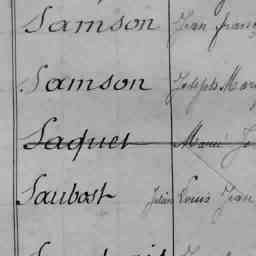 Samson Jean franç
Samson Joseph Mar
Saquet Marie J
Saubost Julien Louis Jean